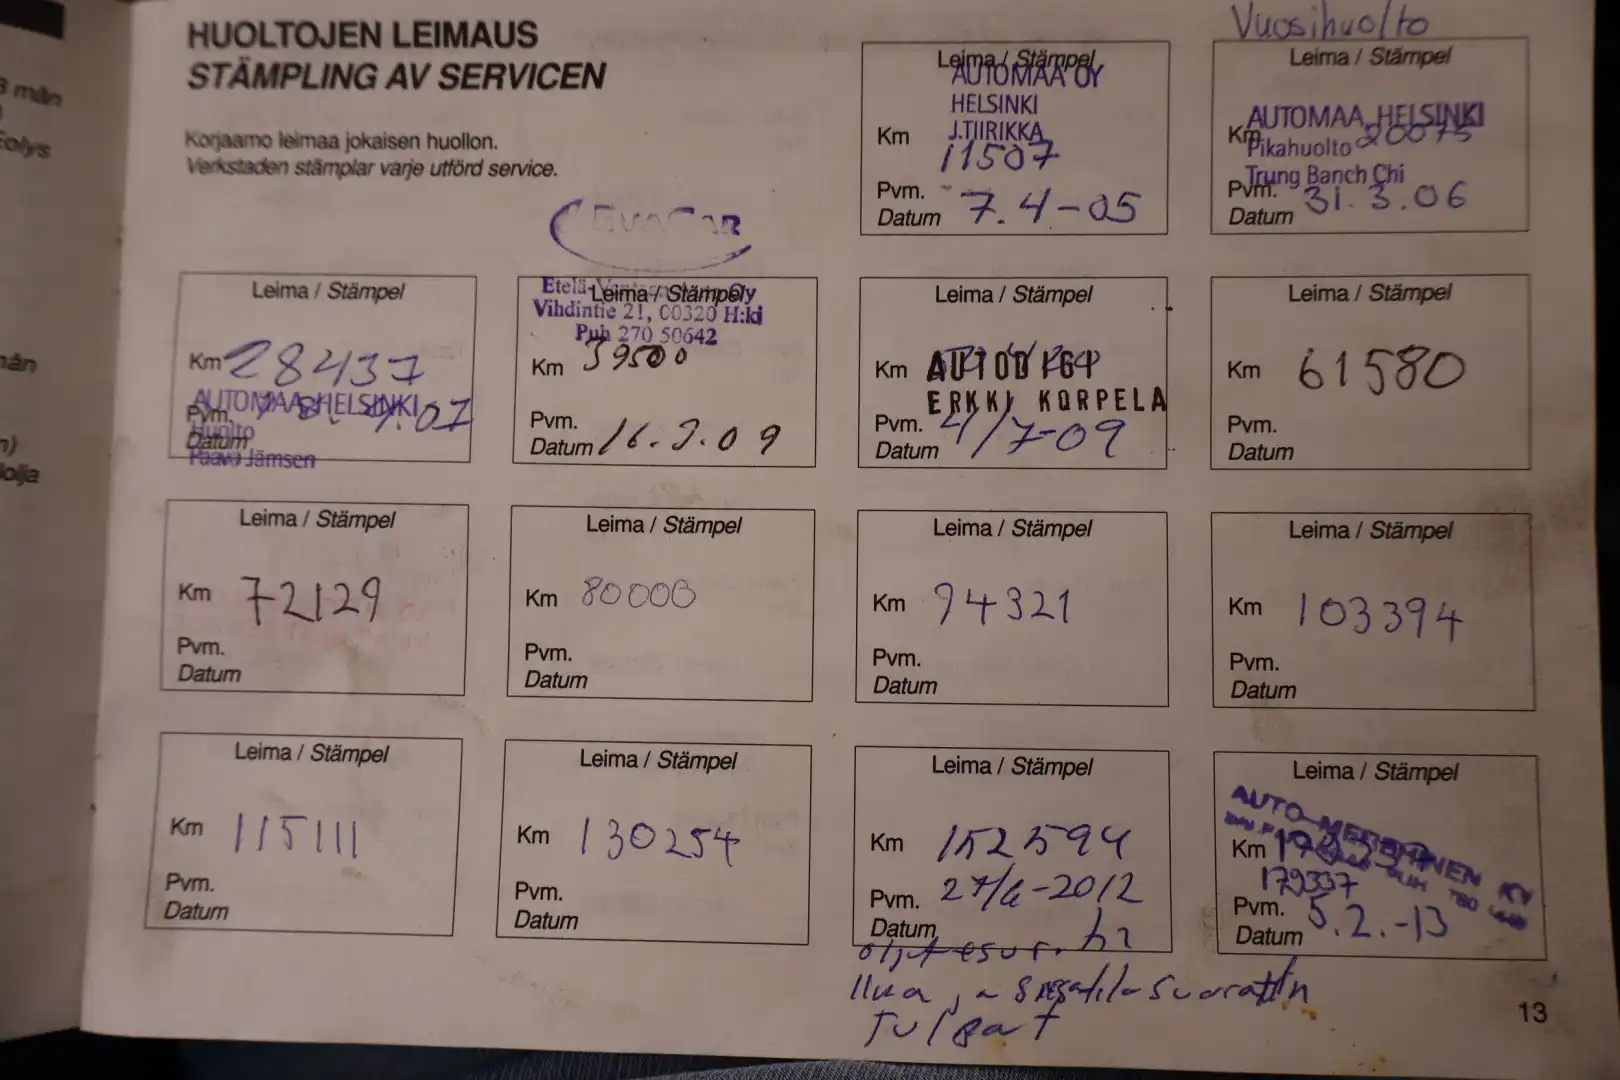 HUOLTOJEN LEIMAUS
STÄMPLING AV SERVICEN
Korjaamo leimaa jokaisen huollon.
Verkstaden stämplar varje utförd service.
Leima / Stämpel
AUTOMAA OY
HELSINKI
J.TIIRIKKA
Km 11507
Pvm.
Datum 7.4-05
Vuosihuolto
Leima / Stämpel
AUTOMAA HELSINKI
Km 20075
Pikahuolto
Trung Banch Chi
Pvm.
Datum 31.3.06
Leima / Stämpel
Km 28437
AUTOMAA HELSINKI
Pvm.
Huolto
Datum
Paavo Jämsen
Leima / Stämpel
Oy
Vihdintie 21, 00320 H:ki
Puh 270 50642
Km 39500
Pvm.
Datum 16.3.09
Leima / Stämpel
Km AUTODIGI
ERKKI KORPELA
Pvm.
Datum 4/7-09
Leima / Stämpel
Km 61580
Pvm.
Datum
Leima / Stämpel
Km 72129
Pvm.
Datum
Leima / Stämpel
Km 80000
Pvm.
Datum
Leima / Stämpel
Km 94321
Pvm.
Datum
Leima / Stämpel
Km 103394
Pvm.
Datum
Leima / Stämpel
Km 115111
Pvm.
Datum
Leima / Stämpel
Km 130254
Pvm.
Datum
Leima / Stämpel
Km 152594
Pvm. 27/6-2012
Datum
Leima / Stämpel
AUTO-MERSHINEN KY
Km
179337
Pvm.
Datum 5.2.-13
13